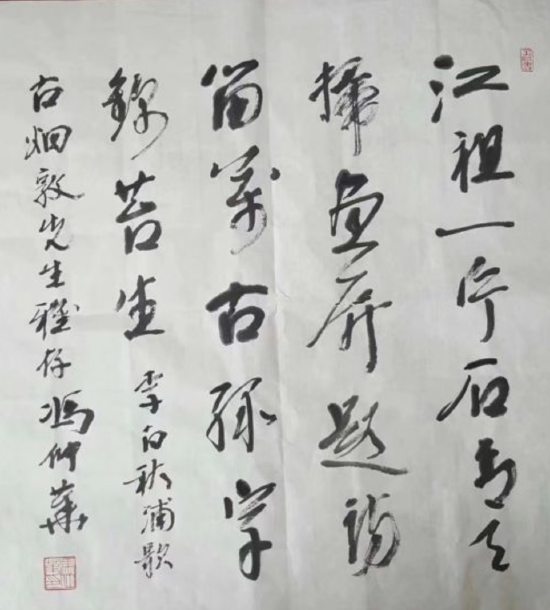 江祖一片石青天
掃畫屏題詩
留萬古綠字
錦苔生 李白秋浦歌
古畑敦先生雅存 馮仲華